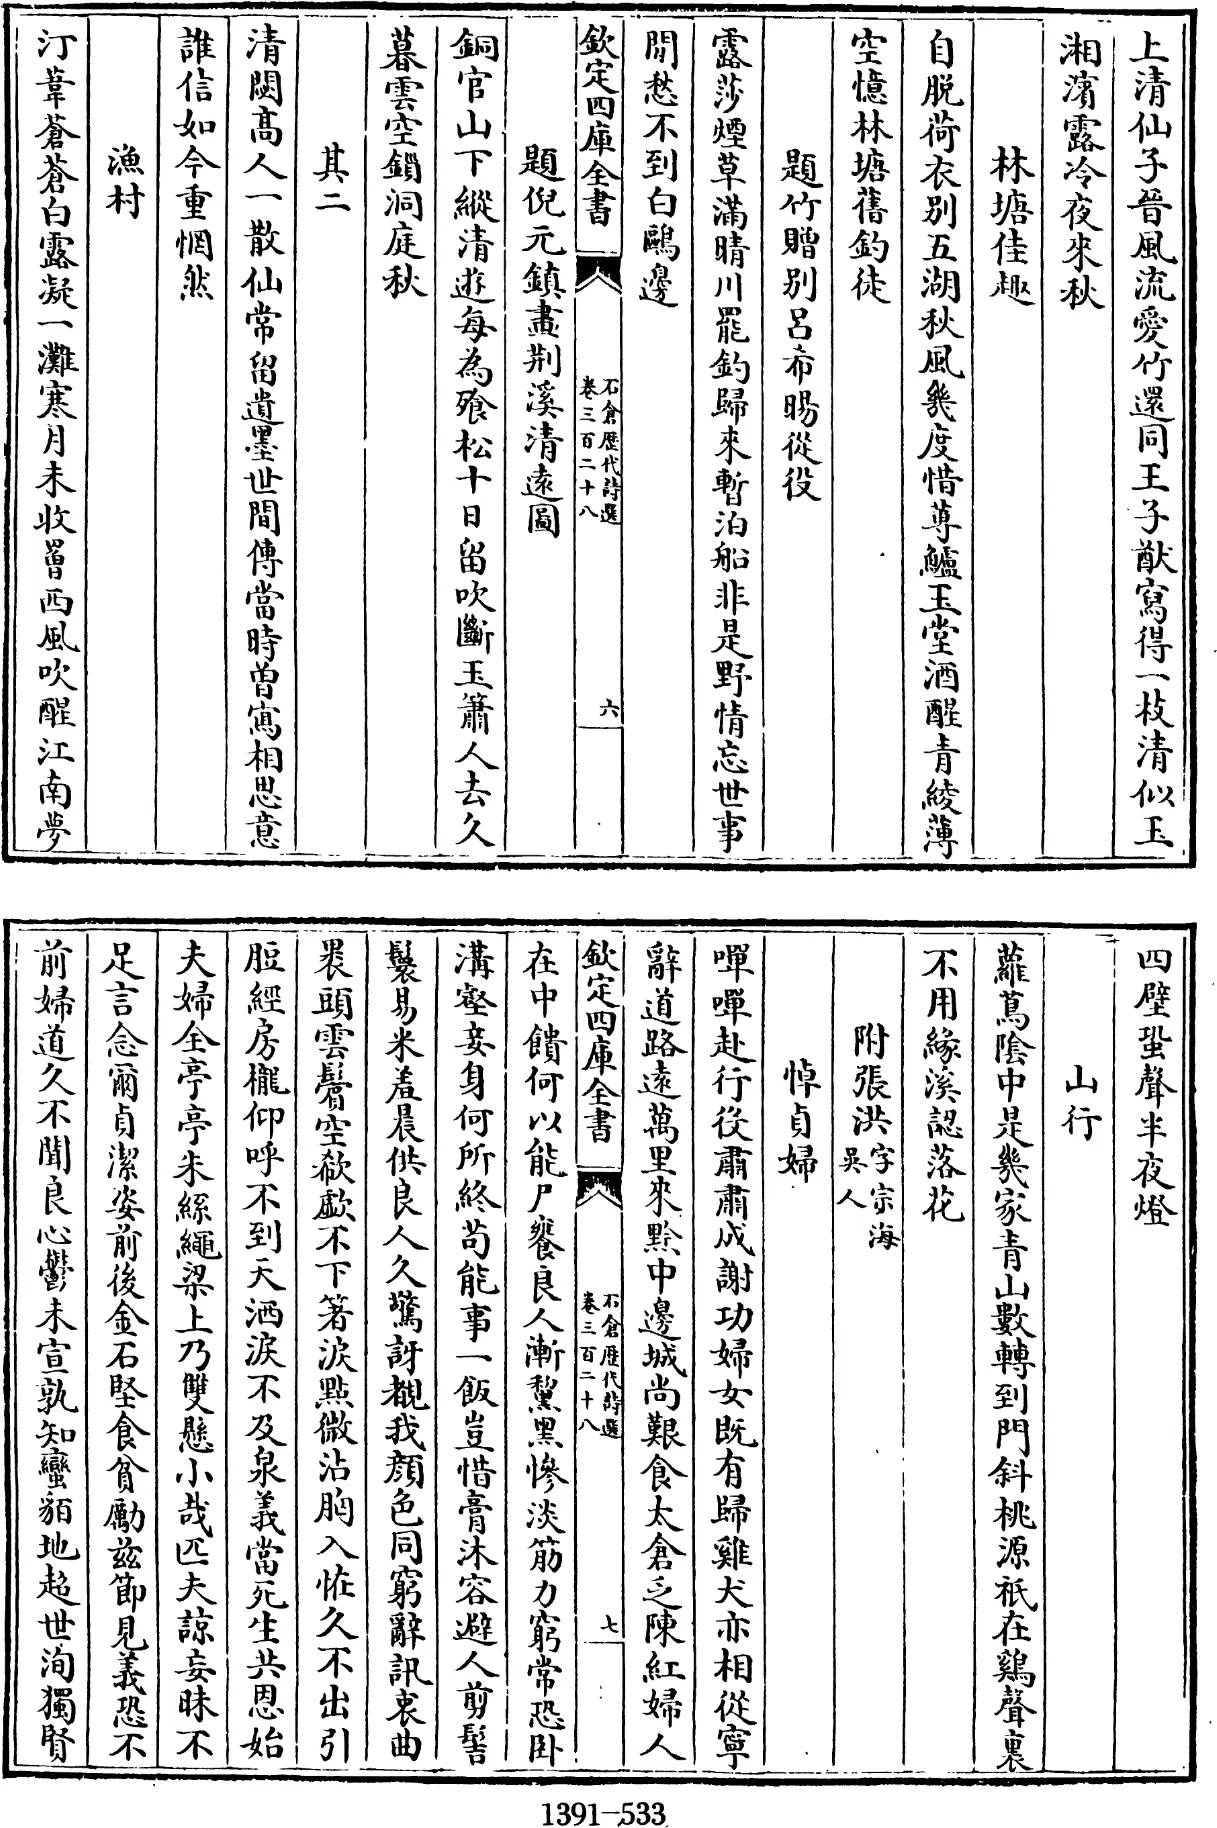 上清仙子晉風流愛竹還同王子猷寫得一枝清似玉
湘濱露冷夜來秋
林塘佳趣
自脱荷衣别五湖秋風幾度惜蓴鱸玉堂酒醒青綾薄
空憶林塘舊釣徒
題竹贈别吕希暘從役
露莎煙草滿晴川罷釣歸來暫泊船非是野情忘世事
閒愁不到白鷗邊
欽定四庫全書
石倉歴代詩選
卷三百二十八
六
題倪元鎮畫荆溪清遠圖
銅官山下縱清遊每為飱松十日留吹斷玉簫人去久
暮雲空鎻洞庭秋
其二
清閟髙人一散仙常留遺墨世間傳當時曽寫相思意
誰信如今重惘然
漁村
汀葦蒼蒼白露凝一灘寒月未收罾西風吹醒江南夢
四壁蛩聲半夜燈
山行
蘿蔦陰中是幾家青山數轉到門斜桃源祇在鷄聲裏
不用緣溪認落花
附張洪字宗海
吳人
悼貞婦
嘽嘽赴行役肅肅成謝功婦女既有歸雞犬亦相從寧
辭道路遠萬里來黔中邊城尚艱食太倉乏陳紅婦人
欽定四庫全書
石倉歴代詩選
卷三百二十八
七
在中饋何以能尸饔良人漸黧黑慘淡筋力窮常恐卧
溝壑妾身何所終苟能事一飯豈惜膏沐容避人剪髻
鬟易米羞晨供良人久驚訝覩我顔色同窮辭訊衷曲
褁頭雲鬢空欷歔不下箸淚點微沾胸入帷久不出引
脰經房櫳仰呼不到天洒淚不及泉義當死生共恩始
夫婦全亭亭朱絲繩梁上乃雙懸小哉匹夫諒妄昧不
足言念爾貞潔姿前後金石堅食貧勵兹節見義恐不
前婦道久不聞良心鬱未宣孰知蠻貊地超世洵獨賢
1391-533